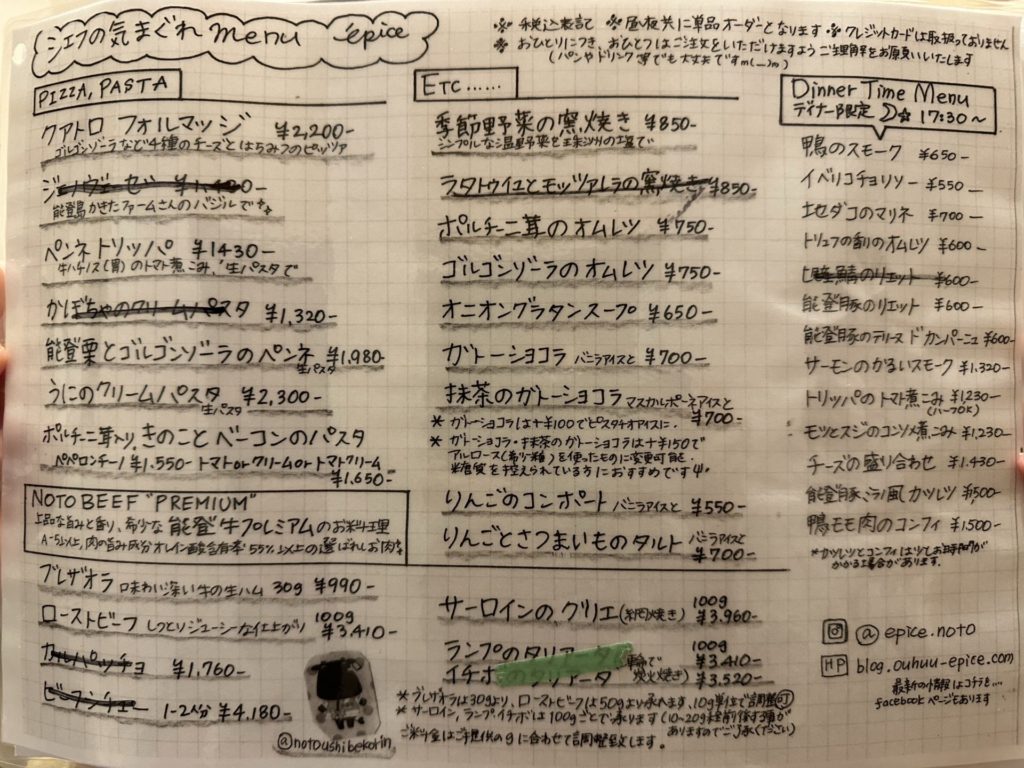 シェフの気まぐれ menu epice
※税込表記 ※昼夜共に単品オーダーとなります ※クレジットカードは取扱っておりません
※おひとりにつき、おひとつはご注文をいただけますようご理解をお願いいたします
(パンやドリンク等でも大丈夫ですm(__)m)
PIZZA, PASTA
クアトロ フォルマッジ ¥2,200-
ゴルゴンゾーラなど4種のチーズとはちみつのピッツァ
ジェノヴェーゼ
能登島かきたファームさんのバジルで
ペンネ トリッパ ¥1430-
牛ハチノス(胃)のトマト煮こみ、生パスタで
かぼちゃのクリームパスタ ¥1,320-
能登栗とゴルゴンゾーラのペンネ ¥1,980-
生パスタ
うにのクリームパスタ ¥2,300-
生パスタ
ポルチーニ茸入り、きのことベーコンのパスタ
ペペロンチーノ ¥1,550- トマトorクリームorトマトクリーム
¥1,650-
ETC……
季節野菜の窯焼き ¥850-
シンプルな温野菜を珠洲の塩で
ラタトウイエとモッツァレラの窯焼き ¥850-
ポルチーニ茸のオムレツ ¥750-
ゴルゴンゾーラのオムレツ ¥750-
オニオングラタンスープ ¥650-
ガトーショコラ バニラアイスと ¥700-
抹茶のガトーショコラ マスカルポーネアイスと
¥700-
* ガトーショコラは+¥100でピスタチオアイスに.
* ガトーショコラ・抹茶のガトーショコラは+¥150で
アルロース(希少糖)を使ったものに変更可能.
糖質を控えられている方におすすめです
りんごのコンポート バニラアイスと ¥550-
りんごとさつまいものタルト バニラアイスと
¥700-
Dinner Time Menu
ディナー限定 17:30〜
鴨のスモーク ¥650-
イベリコチョリソー ¥550-
地ダコのマリネ ¥700-
トリュフの香りのオムレツ ¥600-
七尾鯖のリエット ¥600-
能登豚のリエット ¥600-
能登豚のテリーヌ ド カンパーニュ ¥600-
サーモンのかるいスモーク ¥1,320-
トリッパのトマト煮こみ ¥1,230-
(ハーフOK)
モツとスジのコンソメ煮こみ ¥1,230-
チーズの盛り合わせ ¥1,430-
能登豚ミラノ風カツレツ ¥1,500-
鴨モモ肉のコンフィ ¥1,500-
*カツレツとコンフィは少しお時間が
かかる場合があります.
NOTO BEEF "PREMIUM"
上品な旨みと香り、希少な 能登牛プレミアムのお料理
A-5以上、肉の旨み成分オレイン酸含有率55%以上の選ばれしお肉
ブレザオラ 味わい深い牛の生ハム 30g ¥990-
ローストビーフ しっとりジューシーな仕上がり 100g
¥3,410-
カルパッチョ ¥1,760-
ビフテキ 1-2人分 ¥4,180-
@notoushibekorin
サーロインのグリエ(網焼き) 100g
¥3,960-
ランプのタリアータ 100g
¥3,410-
イチボのタリアータ 炭火焼き) ¥3,520-
* ブレザオラは30gより、ローストビーフは50gより承ります、10g単位で調整可
* サーロイン、ランプ、イチボは100gごとで承ります(10~20g程前後する事が
ありますのでご了承ください)
ご料金はご提供のgに合わせて調整致します.
@epice.noto
HP blog.ouhuu-epice.com
最新の情報はコチラを…
facebookページもあります